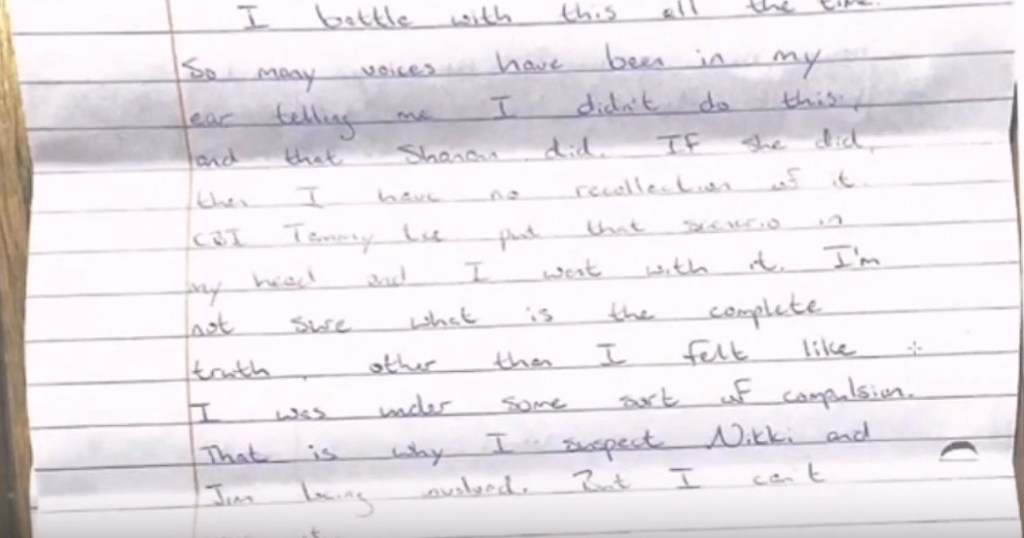 I battle with this all the time.
So many voices have been in my
ear telling me I didn't do this,
and that Shanan did. If she did,
then I have no recollection of it.
CBI Tammy Lee put that scenario in
my head and I went with it. I'm
not sure what is the complete
truth, other than I felt like
I was under some sort of compulsion.
That is why I suspect Nikki and
Jim being involved. But I can't